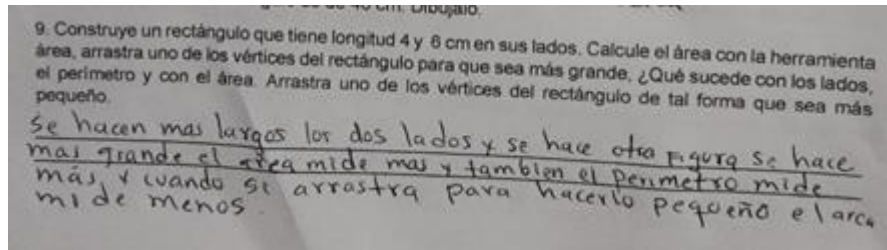 40 cm. Dibújalo.
9. Construye un rectángulo que tiene longitud 4 y 6 cm en sus lados. Calcule el área con la herramienta
área, arrastra uno de los vértices del rectángulo para que sea más grande, ¿Qué sucede con los lados,
el perímetro y con el área. Arrastra uno de los vértices del rectángulo de tal forma que sea más
pequeño.
se hacen mas largos los dos lados y se hace otra figura se hace
mas grande el area mide mas y tambien el perimetro mide
más, y cuando se arrastra para hacerlo pequeño el area
mide menos.